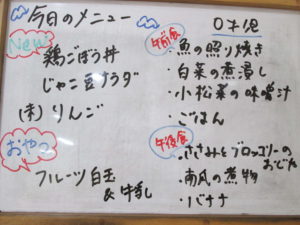 今日のメニュー
New
鶏ごぼう丼
じゃこ豆サラダ
(未)りんご
おやつ
フルーツ白玉
&牛乳
0才児
午前食
・魚の照り焼き
・白菜の煮浸し
・小松菜の味噌汁
・ごはん
午後食
・ささみとブロッコリーの
おじや
・南瓜の煮物
・バナナ